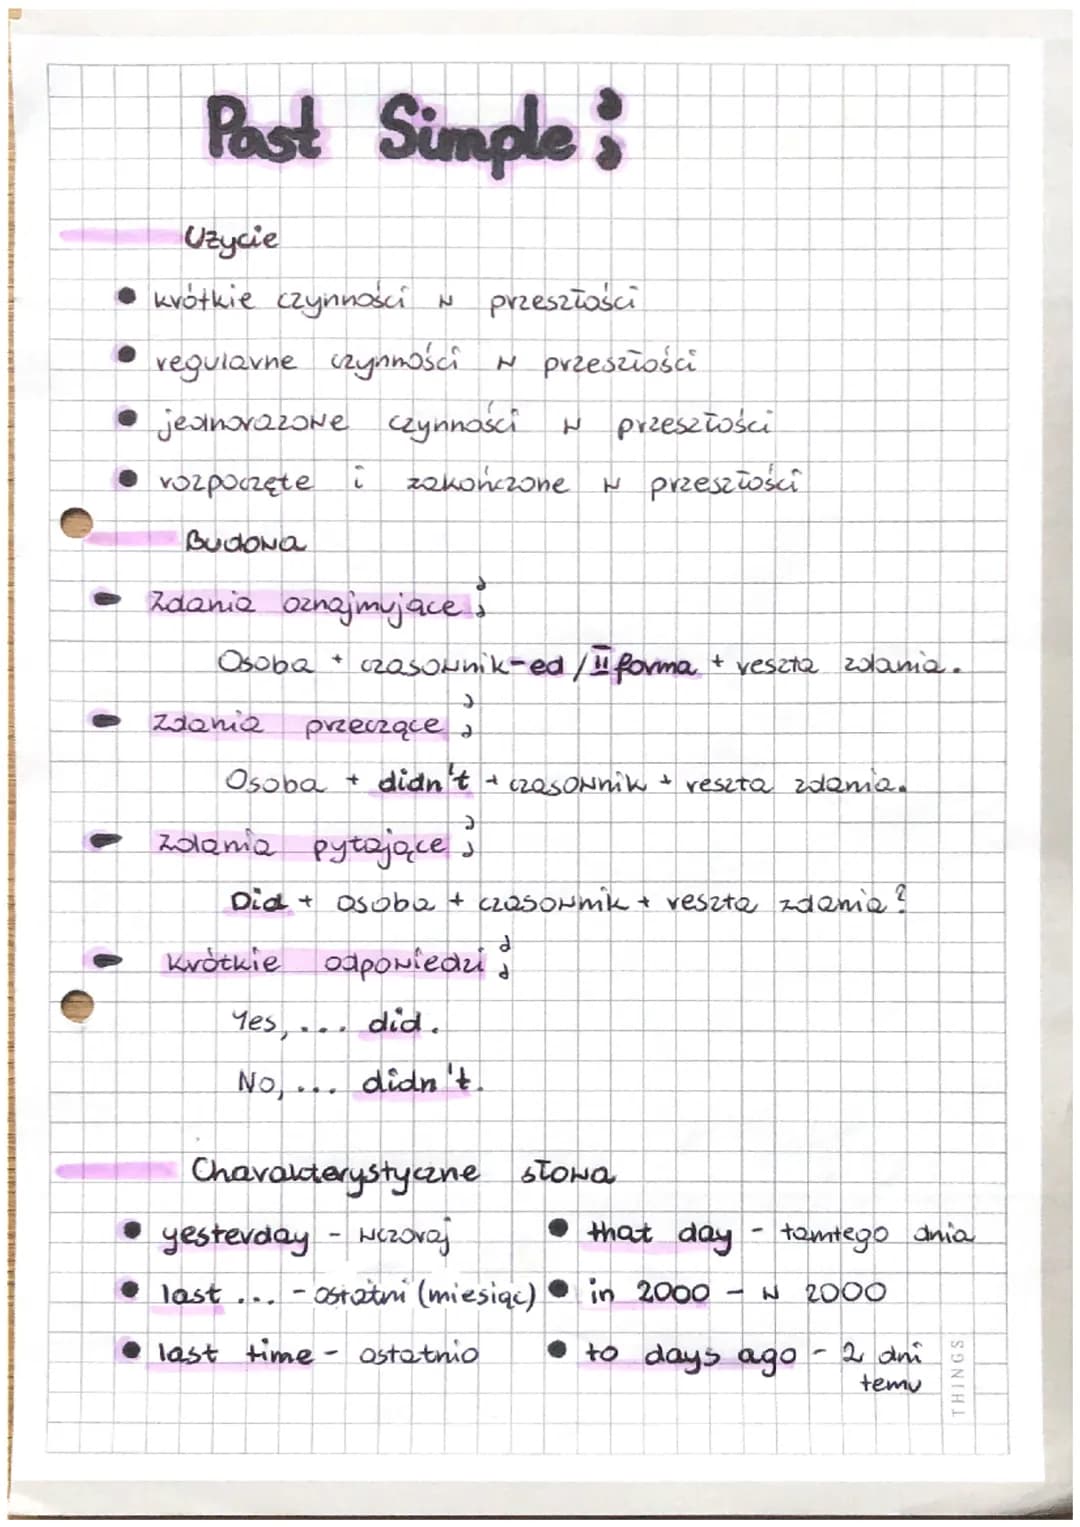 Past Simple:
Użycie
• krótkie czynności w przeszłości
• regularne czynności w przeszłości
• jednorazowe czynności w przeszłości
• rozpoczęte i zakończone w przeszłości
Budowa
- Zdania oznajmujące:
Osoba + czasownik-ed / II forma + reszta zdania.
- Zdania przeczące:
Osoba + didn't + czasownik + reszta zdania.
- Zdania pytające:
Did + osoba + czasownik + reszta zdania?
- Krótkie odpowiedzi:
Yes, ... did.
No, ... didn't.
Charakterystyczne słowa
• yesterday - wczoraj
• last ... - ostatni (miesiąc)
• last time - ostatnio
• that day - tamtego dnia
• in 2000 - w 2000
• to days ago - 2 dni
temu
THINGS